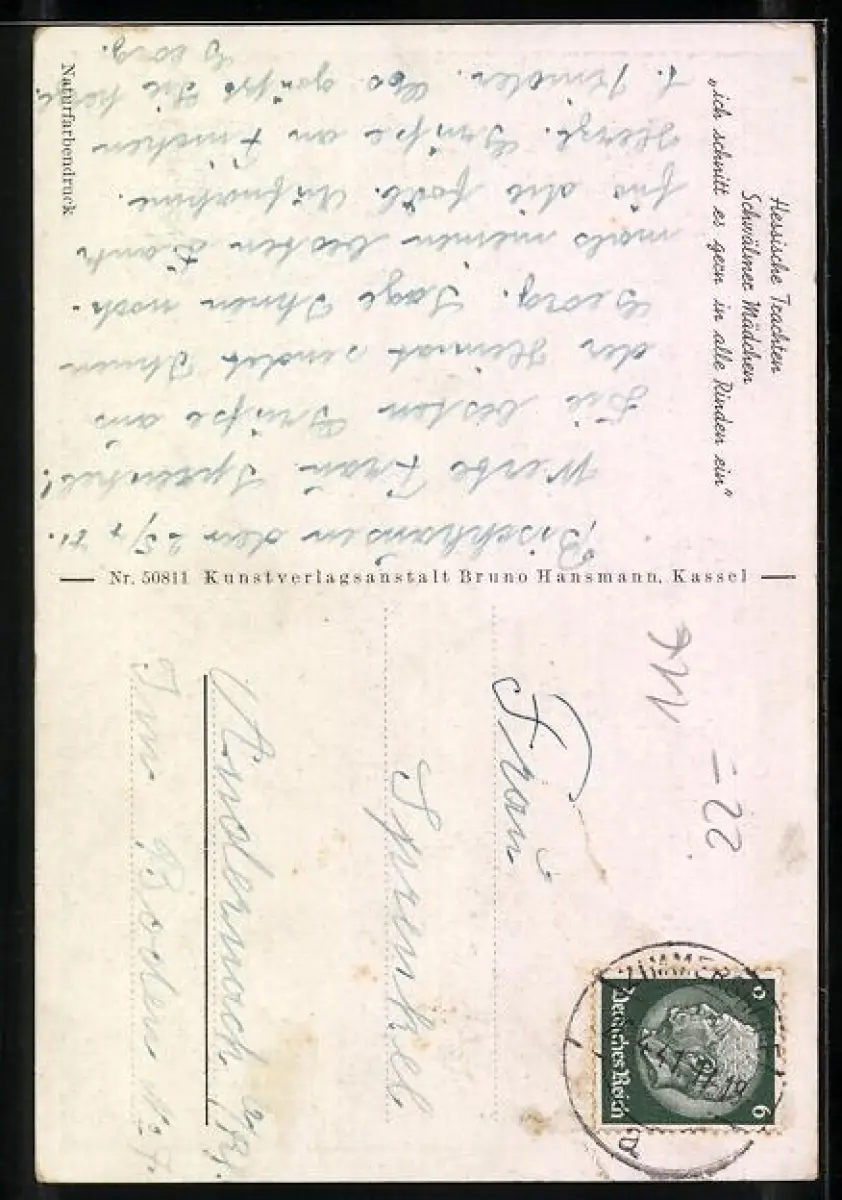 Hessische Trachten
Schwälmer Mädchen
„ich schnitt es gern in alle Rinden ein"
Bischhausen den 25/4 41.
Werte Frau Sprenkel!
Die besten Grüße aus
der Heimat sendet Ihnen
Georg. Sage Ihnen noch-
mals meinen besten Dank
für die Aufnahme.
Herzl. Grüße an
Kinder. Es grüßt Sie herzl.
Georg.
Naturfarbendruck
Nr. 50811 Kunstverlagsanstalt Bruno Hansmann, Kassel
-22
Deutsches Reich
6
Frau
Sprenkel
Andernach a/Rh.
Im Boden N: 7.